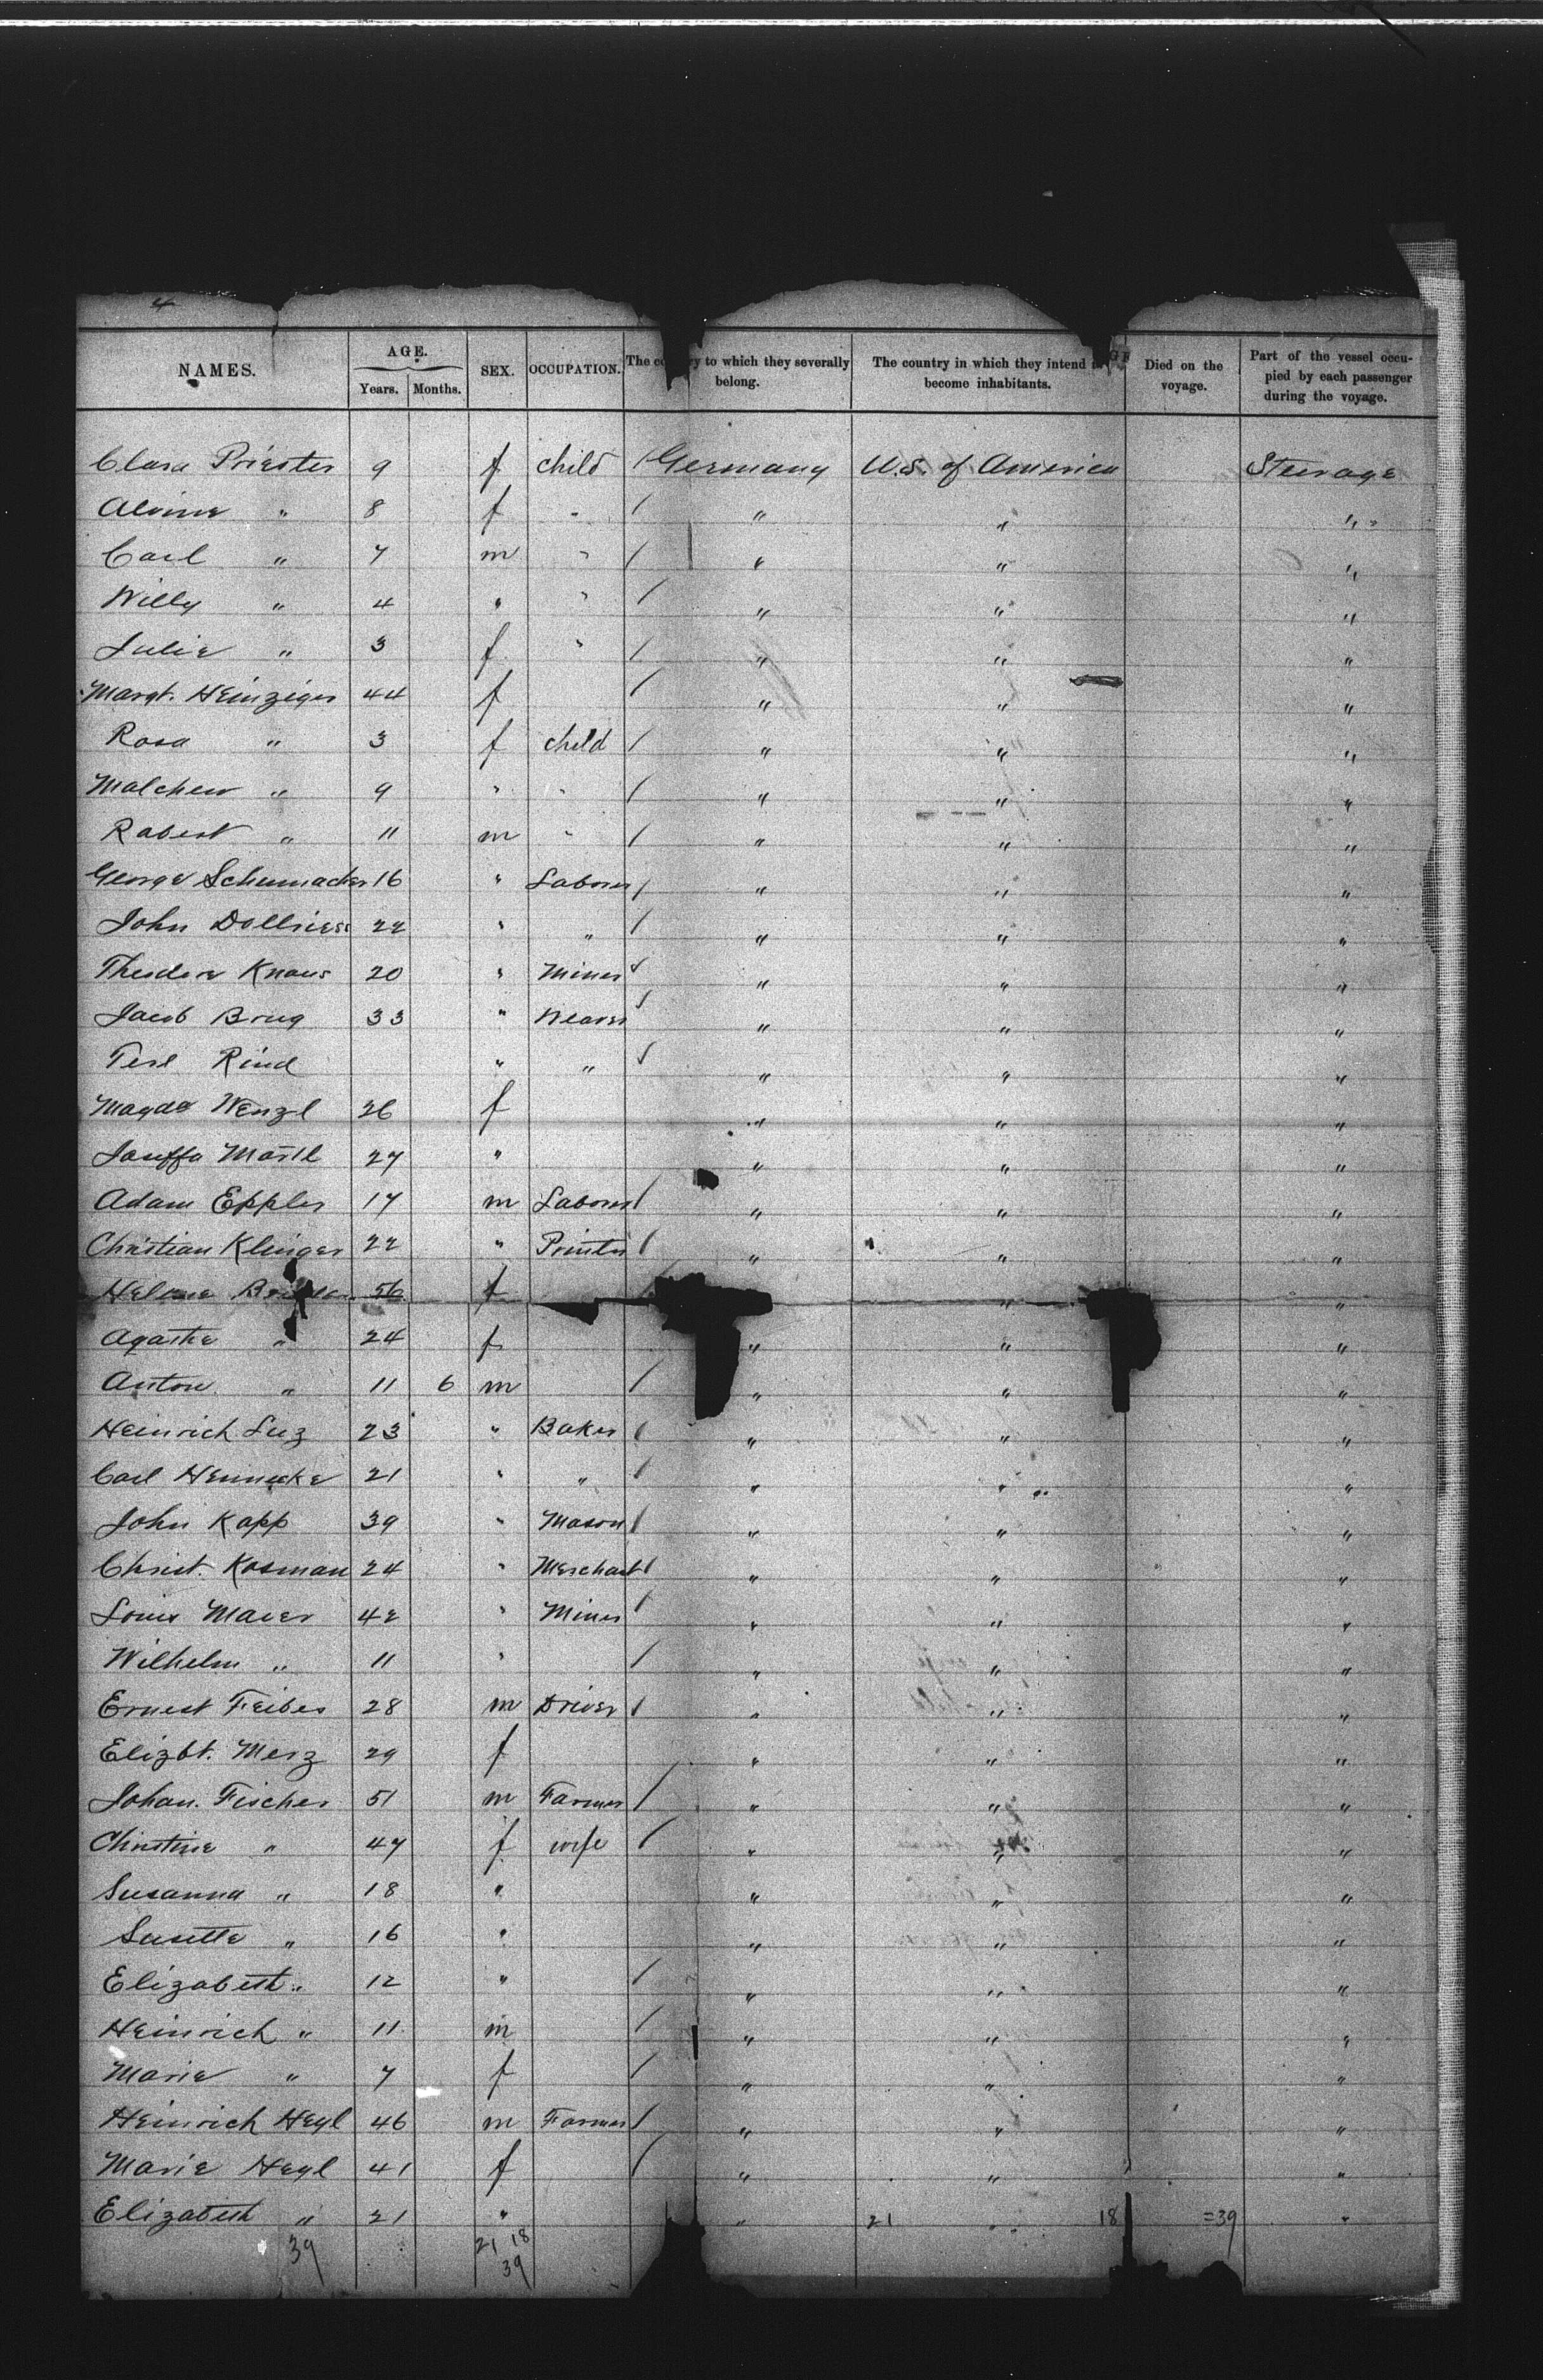 4
NAMES. AGE. Years. Months. SEX. OCCUPATION. The co ry to which they severally belong. The country in which they intend become inhabitants. Died on the voyage. Part of the vessel occupied by each passenger during the voyage.
Clara Priester 9 f child / Germany U.S. of America Steerage
Alvine " 8 f " / " " "
Carl " 7 m " / " " "
Willy " 4 " " / " " "
Julie " 3 f " / " " "
Margt. Heinziger 44 f / " " "
Rosa " 3 f child / " " "
Malchen " 9 " " / " " "
Robert " 11 m " / " " "
George Schumacher 16 " Laborer / " " "
John 22 " " / " " "
Theodore Knaus 20 " Miner / " " "
Jacob Brug 33 " Weaver / " " "
Rind " " / " " "
Magda Wenzl 26 f " " "
Joseffa 27 " " " "
Adam Eppler 17 m Laborer / " " "
Christian Klinger 22 " Printer / " " "
Helene 56 f / " "
Agathe " 24 f " " "
Anton " 11 6 m / " " "
Heinrich Luz 23 " Baker / " " "
Carl Hennecke 21 " " / " " "
John Kapp 39 " Mason / " " "
Christ. Kosman 24 " Merchant / " " "
Louis Maier 42 " Miner / " " "
Wilhelm " 11 " / " " "
Ernest Feibes 28 m Driver / " " "
Elizbt. Merz 29 f " " "
Johan. Fischer 51 m Farmer / " " "
Christine " 47 f wife / " " "
Susanna " 18 " " " "
Susette " 16 " " " "
Elizabeth " 12 " / " " "
Heinrich " 11 m / " " "
Marie " 7 f / " " "
Heinrich Heyl 46 m Farmer / " " "
Marie Heyl 41 f / " " "
Elizabeth " 21 " " 21 " 18 =39 "
39 21 18
39